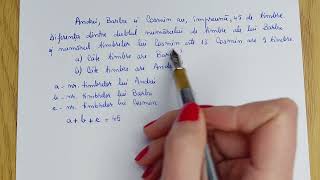 Andrei, Barbu și Cosmin au, împreună, 45 de timbre
Diferența dintre dublul numărului de timbre ale lui Barbu
și numărul timbrelor lui Cosmin este 13 Cosmin are 9 timbre.
a) Câte timbre are Barbu
b) Câte timbre are And
a - nr. timbrelor lui Andrei
b - nr. timbrelor lui Barbu
c - nr. timbrelor lui Cosmin
a + b + c = 45